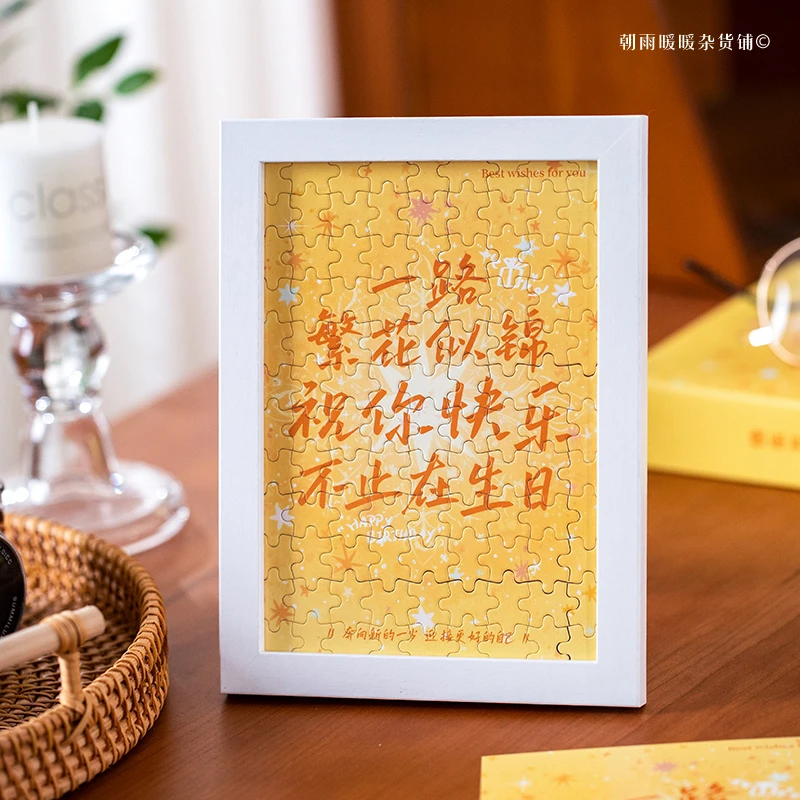 朝雨暖暖杂货铺©
Best wishes for you
一路
繁花似锦
祝你快乐
不止在生日
"HAPPY
BIRTHDAY"
"奔向新的一岁 迎接更好的自己"
class
Best wishes